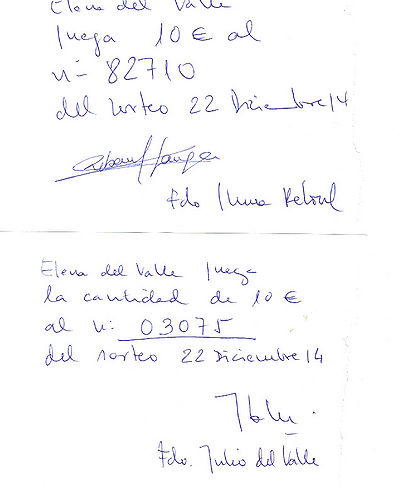 Elena del Valle
Juega 10 € al
nº 82710
del sorteo 22 Diciembre 14
Fdo
Elena del Valle Juega
la cantidad de 10 €
al nº: 03075
del sorteo 22 Diciembre 14
Fdo. Julio del Valle